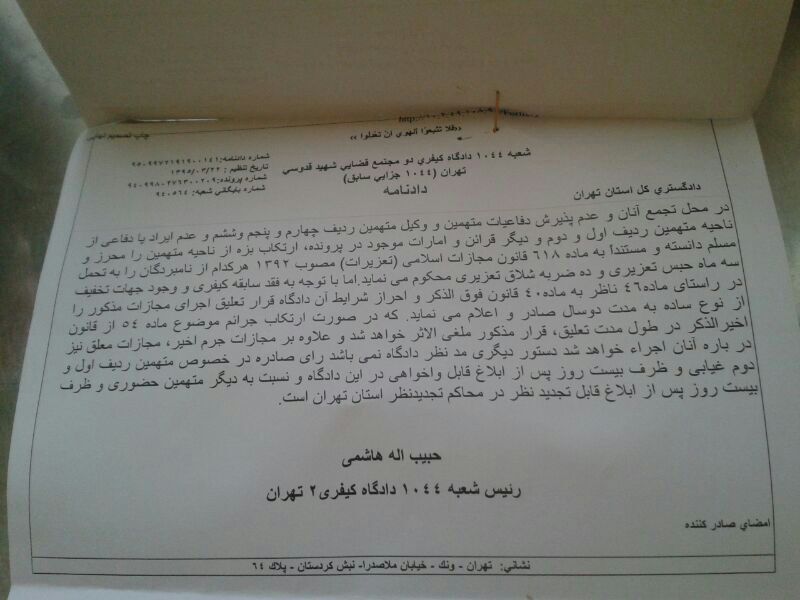 چاپ تصمیم نهایی
«فلا تتبعوا الهوی ان تعدلوا»
شعبه ۱۰۴۴ دادگاه کیفري دو مجتمع قضایي شهید قدوسي
تهران (۱۰۴۴ جزایي سابق)
دادنامه
شماره دادنامه:۹۵۰۹۹۷۲۱۹۱۹۰۰۱۴۱
تاریخ تنظیم : ۱۳۹۵/۰۳/۲۲
شماره پرونده:۹۴۰۹۹۸۰۲۷۶۳۰۰۲۰۹
شماره بایگاني شعبه: ۹۴۰۵۶۴
دادگستري کل استان تهران
در محل تجمع آنان و عدم پذیرش دفاعیات متهمین و وکیل متهمین ردیف چهارم و پنجم وششم و عدم ایراد یا دفاعی از
ناحیه متهمین ردیف اول و دوم و دیگر قرائن و امارات موجود در پرونده، ارتکاب بزه از ناحیه متهمین را محرز و
مسلم دانسته و مستنداً به ماده ۶۱۸ قانون مجازات اسلامی (تعزیرات) مصوب ۱۳۹۲ هرکدام از نامبردگان را به تحمل
سه ماه حبس تعزیری و ده ضربه شلاق تعزیری محکوم می نماید.اما با توجه به فقد سابقه کیفری و وجود جهات تخفیف
در راستای ماده۴۶ ناظر به ماده۴۰ قانون فوق الذکر و احراز شرایط آن دادگاه قرار تعلیق اجرای مجازات مذکور را
از نوع ساده به مدت دوسال صادر و اعلام می نماید. که در صورت ارتکاب جرائم موضوع ماده ۵۴ از قانون
اخیرالذکر در طول مدت تعلیق، قرار مذکور ملغی الاثر خواهد شد و علاوه بر مجازات جرم اخیر، مجازات معلق نیز
در باره آنان اجراء خواهد شد دستور دیگری مد نظر دادگاه نمی باشد رای صادره در خصوص متهمین ردیف اول و
دوم غیابی و ظرف بیست روز پس از ابلاغ قابل واخواهی در این دادگاه و نسبت به دیگر متهمین حضوری و ظرف
بیست روز پس از ابلاغ قابل تجدید نظر در محاکم تجدیدنظر استان تهران است.
حبیب اله هاشمی
رئیس شعبه ۱۰۴۴ دادگاه کیفری۲ تهران
امضاي صادر کننده
نشاني: تهران - ونك - خیابان ملاصدرا- نبش کردستان - پلاك ۶۴